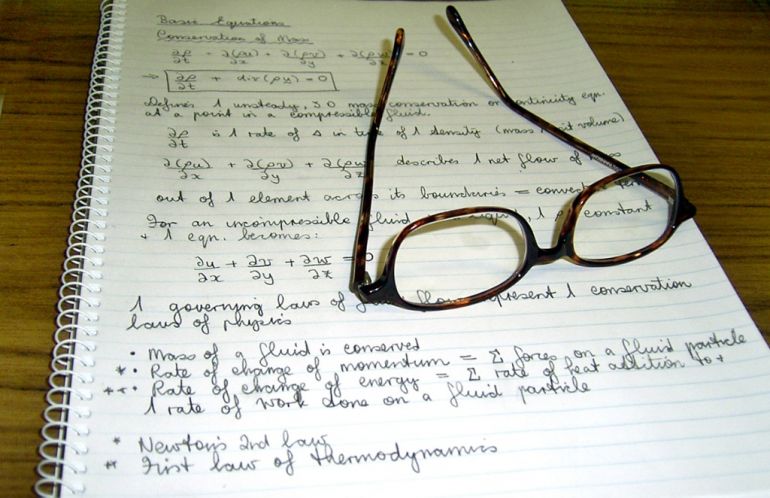 Basic Equations
Conservation of Mass
∂ρ/∂t + ∂(ρu)/∂x + ∂(ρv)/∂y + ∂(ρw)/∂z = 0
⇒ ∂ρ/∂t + div(ρu) = 0
Defines 1 unsteady, 3D mass conservation or continuity eqn.
at a point in a compressible fluid.
∂ρ/∂t is 1 rate of Δ in time of 1 density (mass / unit volume)
∂(ρu)/∂x + ∂(ρv)/∂y + ∂(ρw)/∂z describes 1 net flow of mass
out of 1 element across its boundaries =
For an incompressible fluid 1 ρ constant
+ 1 eqn. becomes:
∂u/∂x + ∂v/∂y + ∂w/∂z = 0
1 governing laws of flow represent 1 conservation
laws of physics
• Mass of a fluid is conserved
*• Rate of change of momentum = Σ forces on a fluid particle
**• Rate of change of energy = Σ rate of heat addition to +
1 rate of work done on a fluid particle
* Newton's 2nd law
** First law of thermodynamics